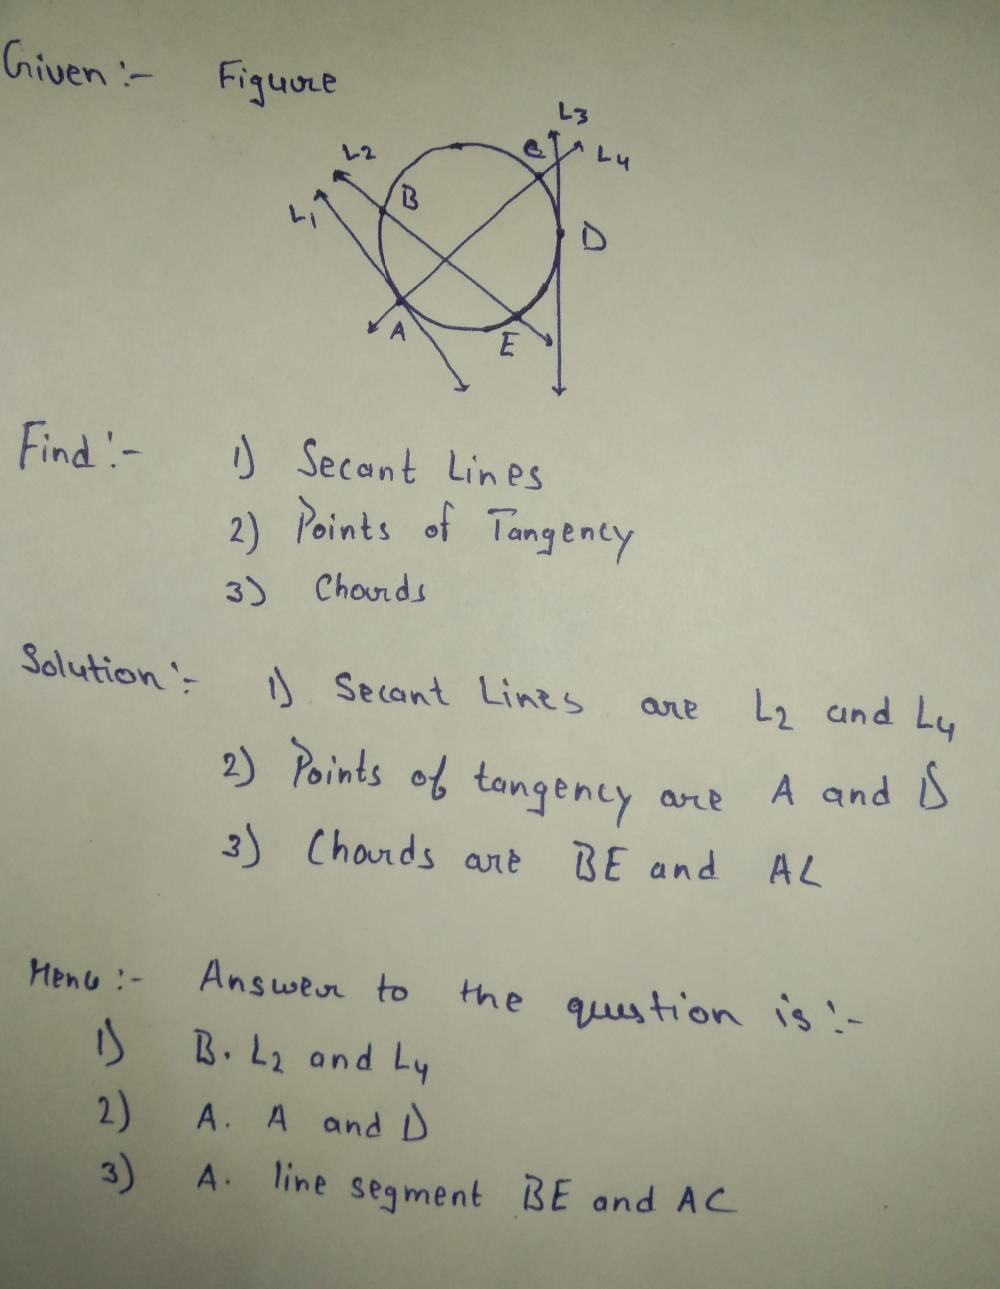 Given :- Figure
L3
L2
C
L4
B
L1
D
A
E
Find :- 1) Secant Lines
2) Points of Tangency
3) Chords
Solution :- 1) Secant Lines are L2 and L4
2) Points of tangency are A and D
3) Chords are BE and AC
Henc :- Answer to the question is :-
1) B. L2 and L4
2) A. A and D
3) A. line segment BE and AC